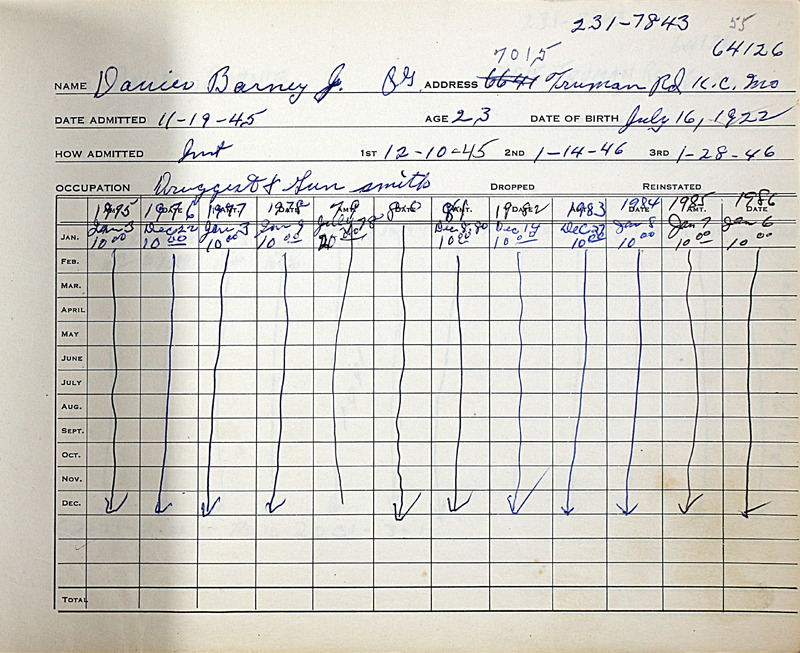 231-7843 55
7015 64126
NAME Danico Barney Jr. ADDRESS 6641 Truman Rd K.C. Mo
DATE ADMITTED 11-19-45 AGE 23 DATE OF BIRTH July 16, 1922
HOW ADMITTED Init 1ST 12-10-45 2ND 1-14-46 3RD 1-28-46
OCCUPATION Druggist & Gun smith DROPPED REINSTATED
1975 1976 1977 1978 79 80 81 1982 1983 1984 1985 1986
AMT. DATE AMT. DATE AMT. DATE AMT. DATE AMT. DATE AMT. DATE
JAN. Jan 3 Dec 22 Jan 3 Jan 9 July 78 Dec 8, 80 Dec 14 Dec 27 Jan 8 Jan 7 Jan 6
10 00 10 00 10 00 10 00 20 00 10 00 10 00 10 00 10 00 10 00 10 00
FEB.
MAR.
APRIL
MAY
JUNE
JULY
AUG.
SEPT.
OCT.
NOV.
DEC.
TOTAL